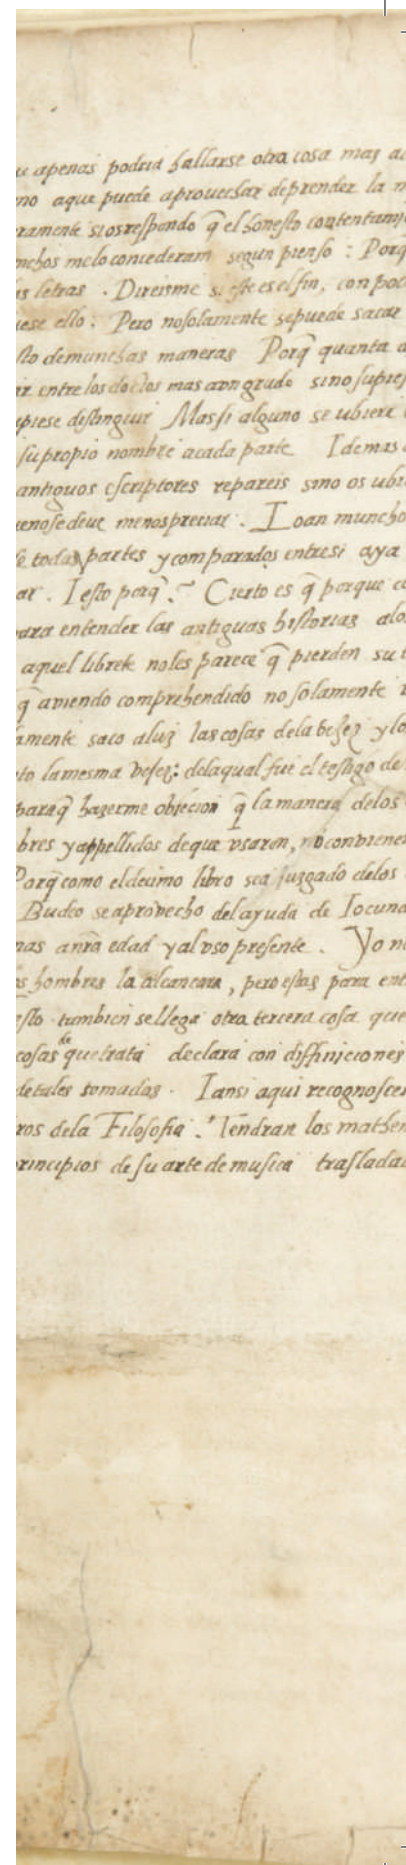 apenas podria hallarse otra cosa mas
no aque puede aprouechar deprender la
ramente si os respondo q̃ el honesto contentami
nchos melo concederam segun pienso : Porq
as letras . Direisme si este es el fin, con poc
uese ello : Pero nosolamente sepuede sacar
sto demunchas maneras Porq̃ quanta
ar entre los doctos mas aon grado sino supies
epiese distinguir Massi alguno se ubiere
supropio nombre acada parte I demas
antiguos escriptores repareis sino os ubi
uenosedeue menospreciar . Loan muncho
de todas partes y comparados entresi aya
ar . I esto porq̃ . Cierto es q̃ porque
para entender las antiguas historias alo
aquel librete noles parece q̃ pierden su
q̃ auiendo comprehendido no solamente
amente saco aluz las cosas dela vejez y lo
to lamesma vejez: delaqual fue el testigo de
paraq̃ hazerme objecion q̃ la manera delos
bres y appellidos deque vsaron, no conviene
Porq̃ como eldecimo libro sea juzgado delos
Budeo se aprovecho del ayuda de Iocund
nas anr̃a edad y al vso presente . Yo n
os hombres la alcancara, pero estas para ent
esto tambien sellega otra tercera cosa que
cosas de quetrata declara con diffiniciones
detales tomadas . Iansi aqui recognoscer
ros dela Filosofia . Tendran los mathem
principios de su arte de musica trasladad